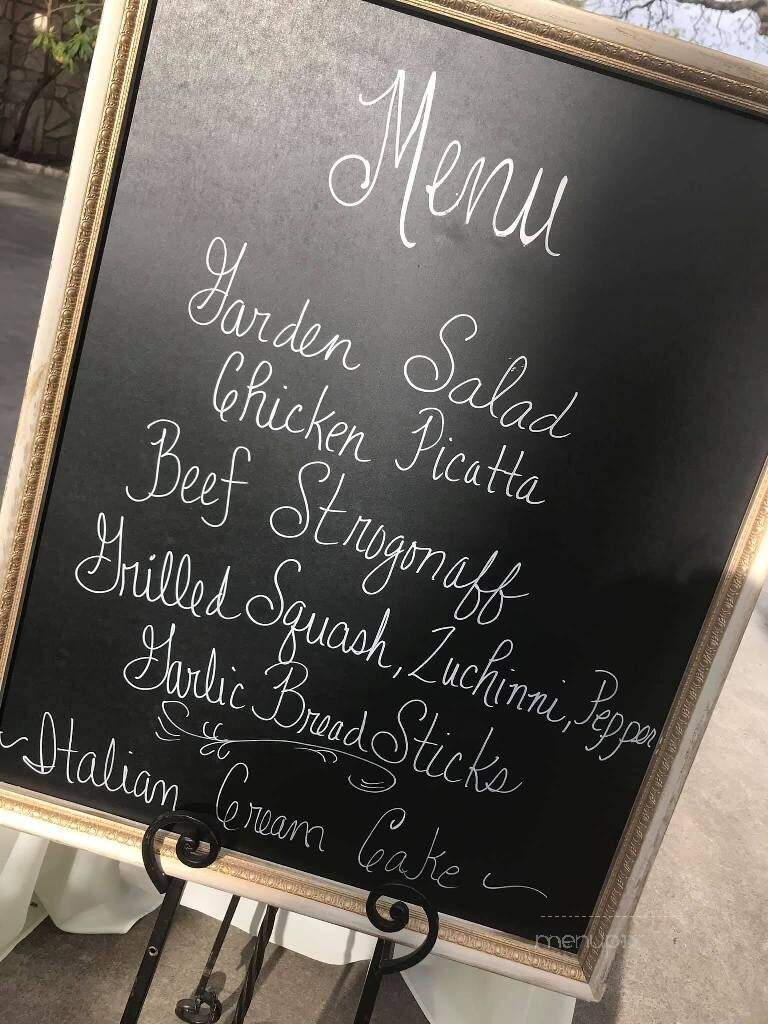 Menu
Garden Salad
Chicken Picatta
Beef Strogonaff
Grilled Squash, Zuchinni, Pepper
Garlic Bread Sticks
~Italian Cream Cake~
menupix